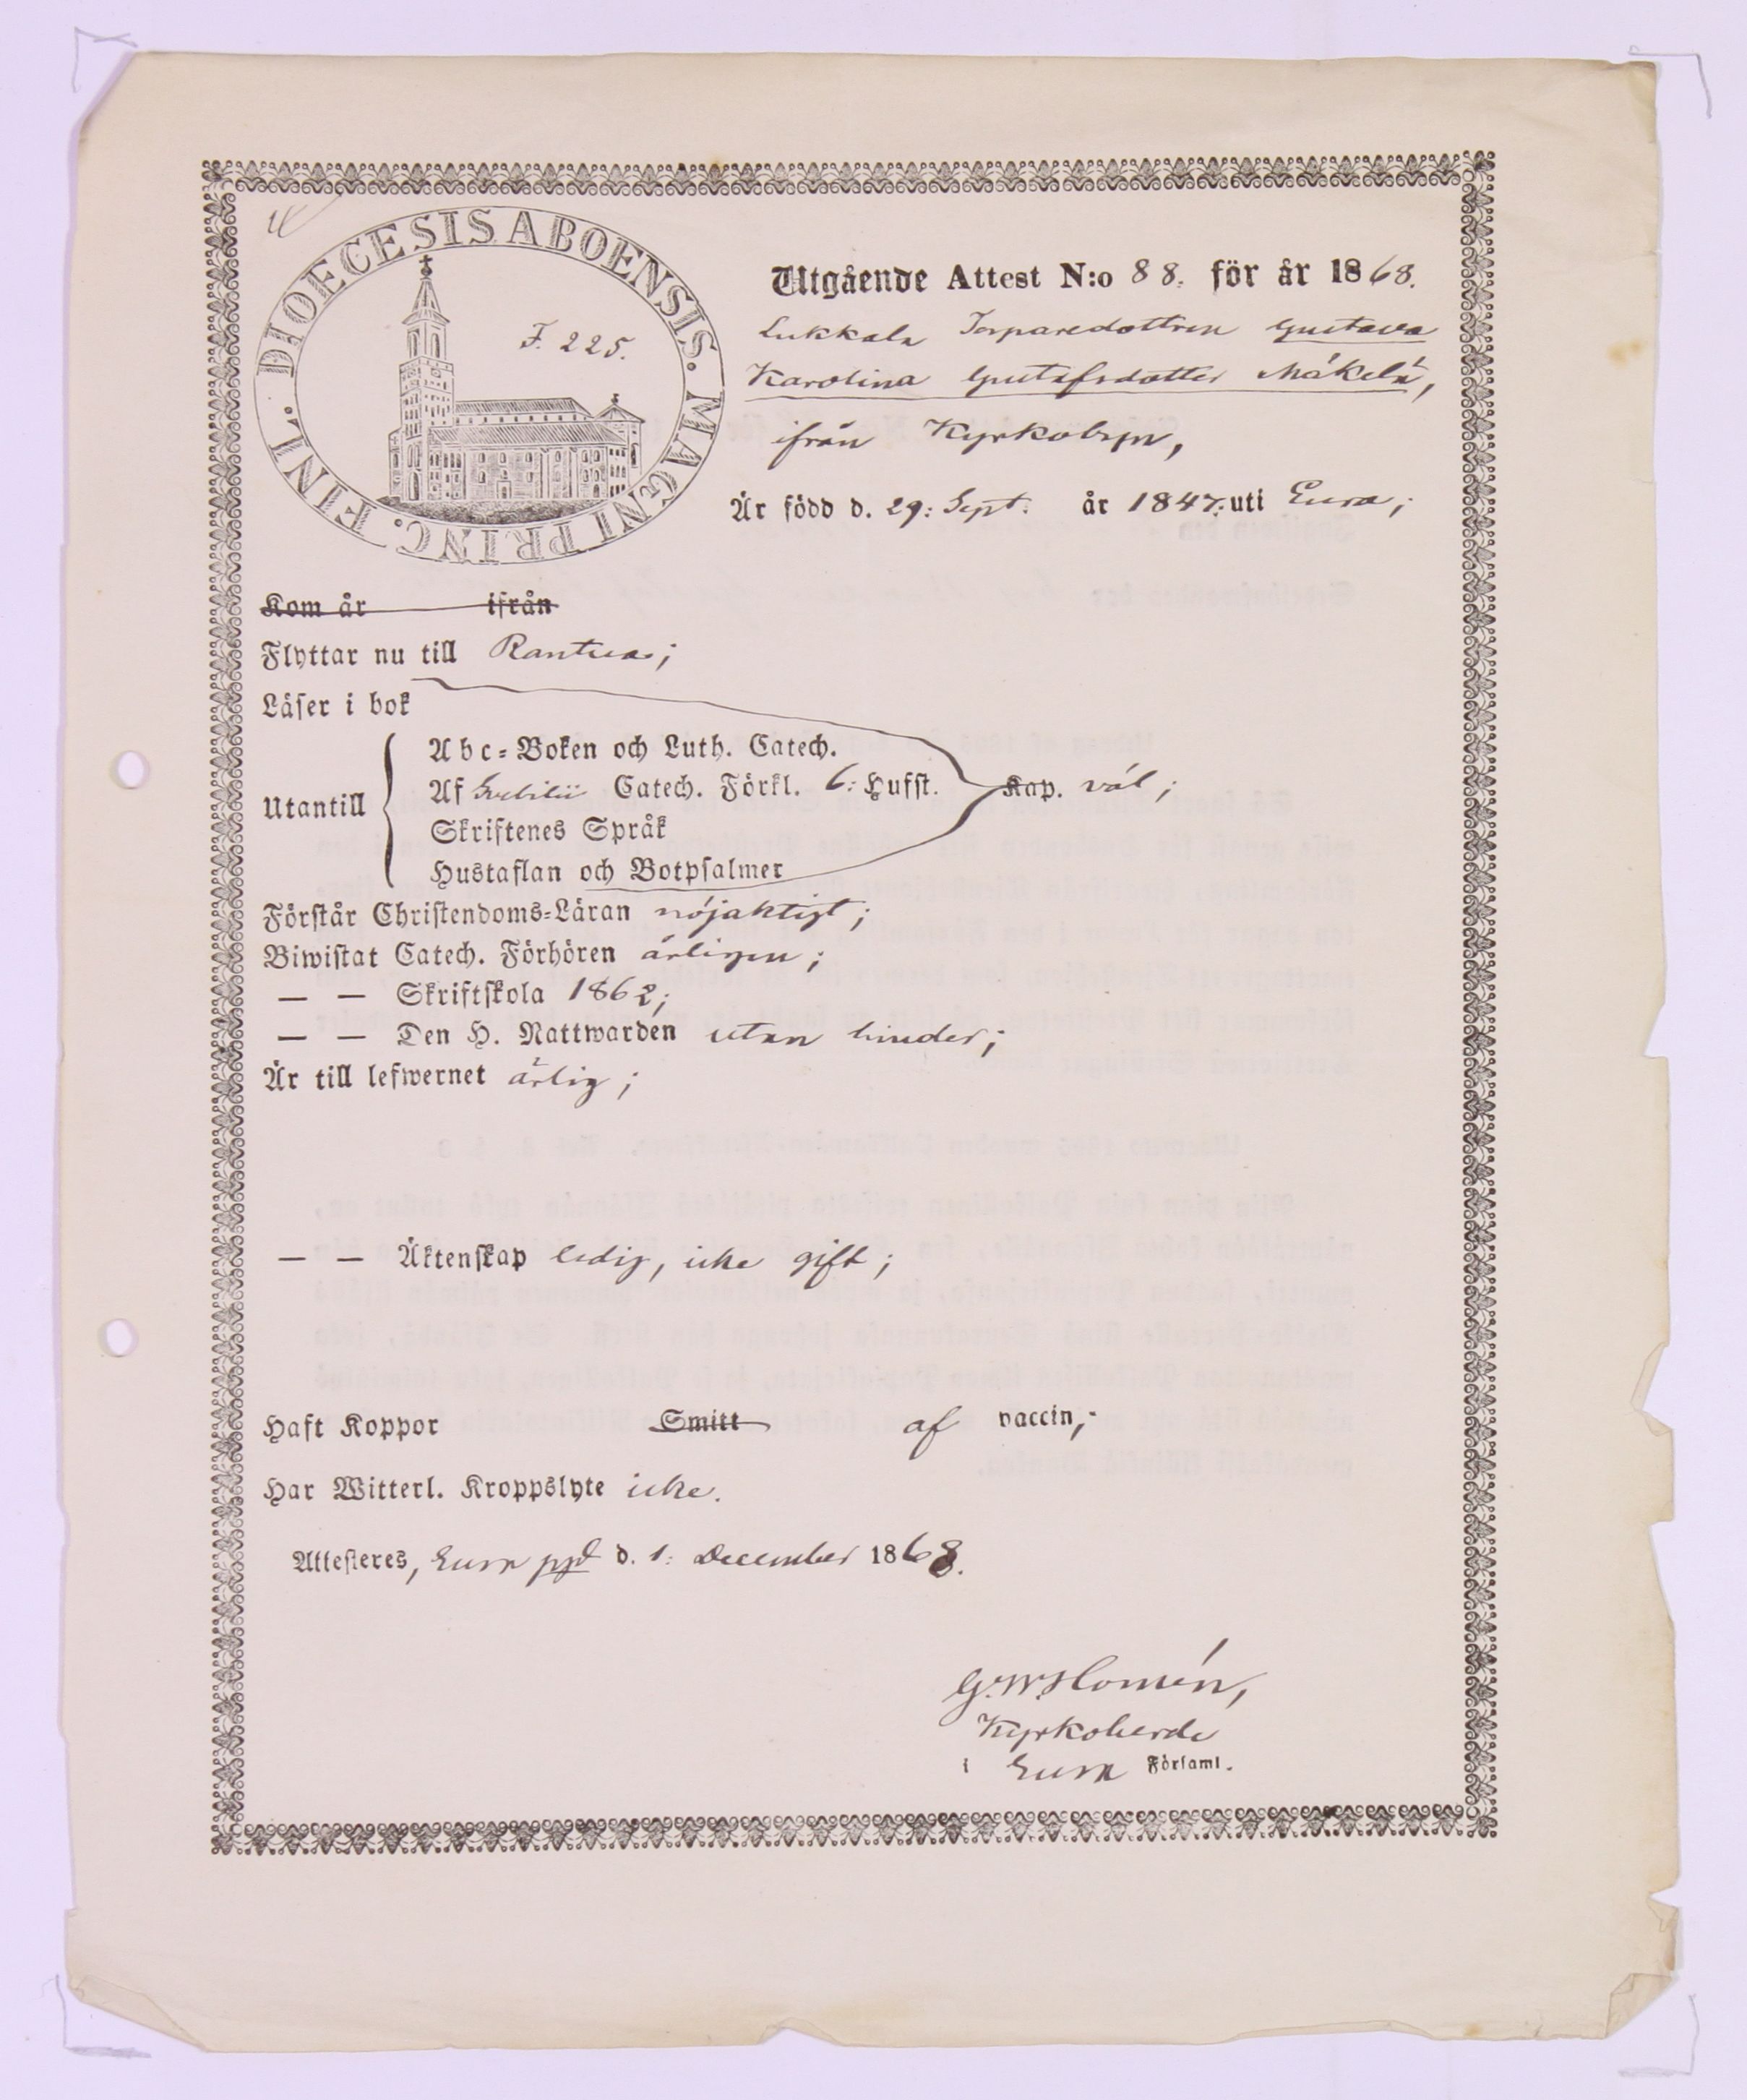 DIOECESIS ABOENSIS. MAGNI PRINC. FINL.
F. 225.
Utgående Attest N:o 88. för år 1868.
Lukkala Torparedottren Gustava
Karolina Gustafsdotter Mäkelä,
ifrån Kyrkobyn,
Är född d. 29: Sept. år 1847. uti Eura;
Kom år ifrån
Flyttar nu till Rantua;
Läser i bok
Utantill
Abc-Boken och Luth. Catech.
Af Svebilii Catech. Förkl. 6: Hufst. Kap. väl;
Skriftenes Språk
Hustaflan och Botpsalmer
Förstår Christendoms-Läran nöjaktigt;
Biwistat Catech. Förhören årligen;
— — Skriftskola 1862;
— — Den H. Nattwarden utan hinder;
Är till lefwernet ärlig;
— — Äktenskap ledig, icke gift;
Haft Koppor Smitt af vaccin;
Har Witterl. Kroppslyte icke.
Attesteres, Eura pgd d. 1: December 1868.
G. W. Homén,
Kyrkoherde
i Eura Församl.